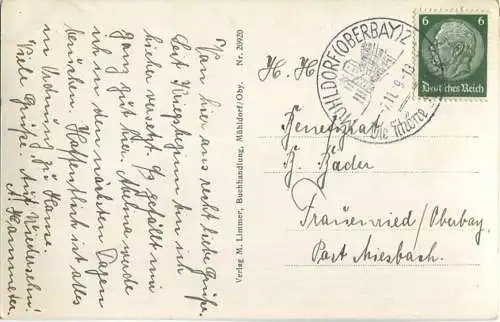 Von hier aus recht liebe Grüße.
Seit Kriegsbeginn bin ich
hieher versetzt. Es gefällt mir
ganz gut hier. Mutter wurde
ich in den nächsten Tagen
besuchen. Hoffentlich ist alles
in Ordnung zu Hause.
Viele Grüße. Auf Wiedersehn!
A. Hammerer
Verlag M. Limmer, Buchhandlung, Mühldorf Oby. Nr. 20620
MÜHLDORF (OBERBAY) 2
11.9-18
Die
6 6
Deutsches Reich
H. H.
Benefiziat
B. Bader
Frauenried/Oberbay.
Post Miesbach.